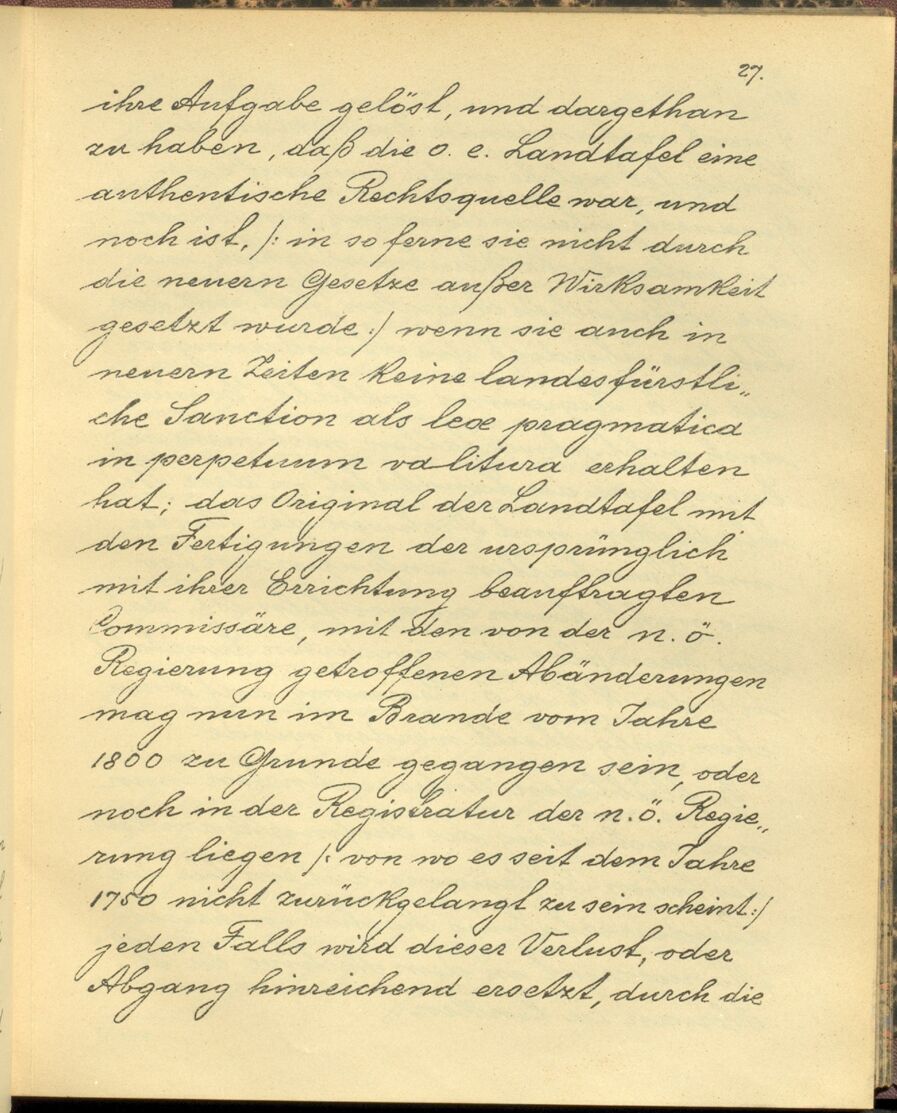 27.
ihre Aufgabe gelöst, und dargethan
zu haben, daß die o. e. Landtafel eine
authentische Rechtsquelle war, und
noch ist, /: in so ferne sie nicht durch
die neuern Gesetze außer Wirksamkeit
gesetzt wurde :/ wenn sie auch in
neuern Zeiten keine landesfürstli„
che Sanction als lex pragmatica
in perpetuum valitura erhalten
hat; das Original der Landtafel mit
den Fertigungen der ursprünglich
mit ihrer Errichtung beauftragten
Commissäre, mit den von der n. ö.
Regierung getroffenen Abänderungen
mag nun im Brande vom Jahre
1800 zu Grunde gegangen sein, oder
noch in der Registratur der n. ö. Regie„
rung liegen /: von wo es seit dem Jahre
1750 nicht zurückgelangt zu sein scheint :/
jeden Falls wird dieser Verlust, oder
Abgang hinreichend ersetzt, durch die